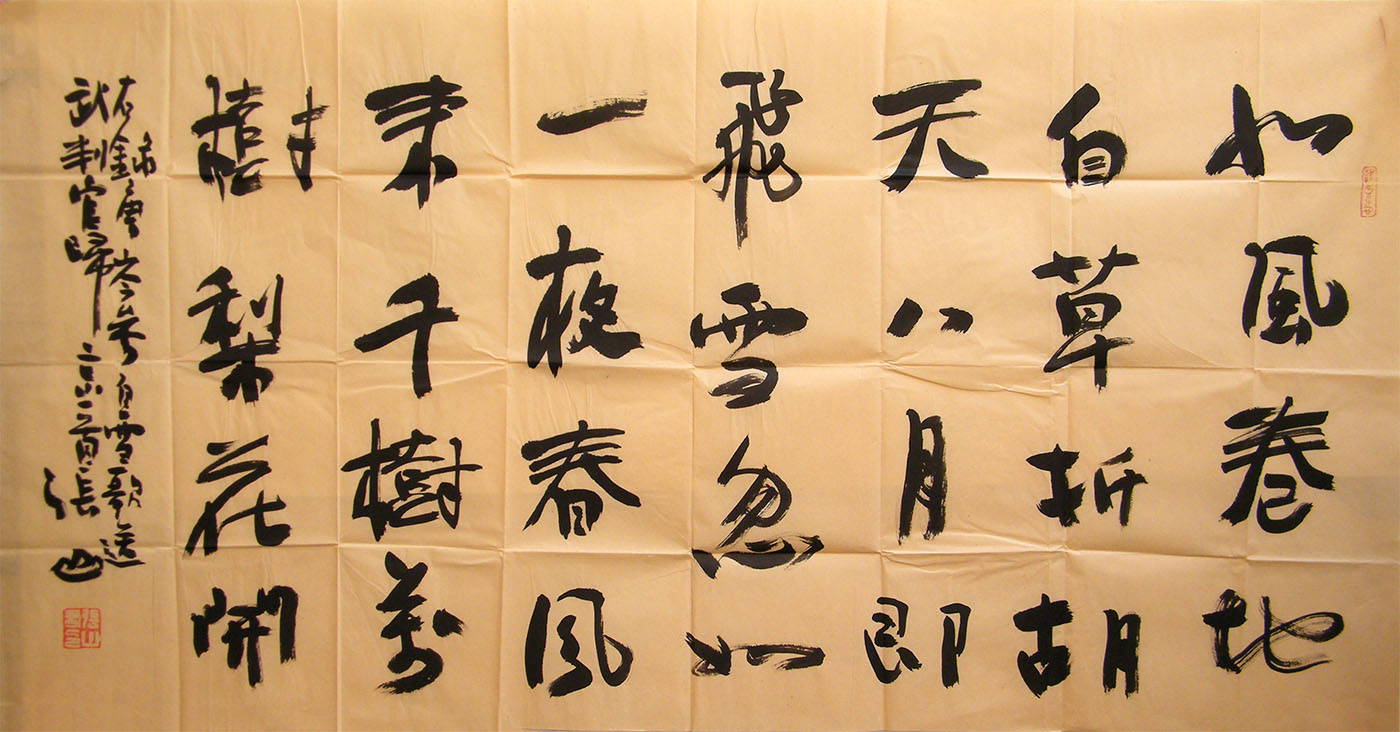 北風卷地
白草折胡
天八月即
飛雪忽如
一夜春風
来千樹萬
樹梨花開
右錄唐岑參白雪歌送
武判官歸 張山